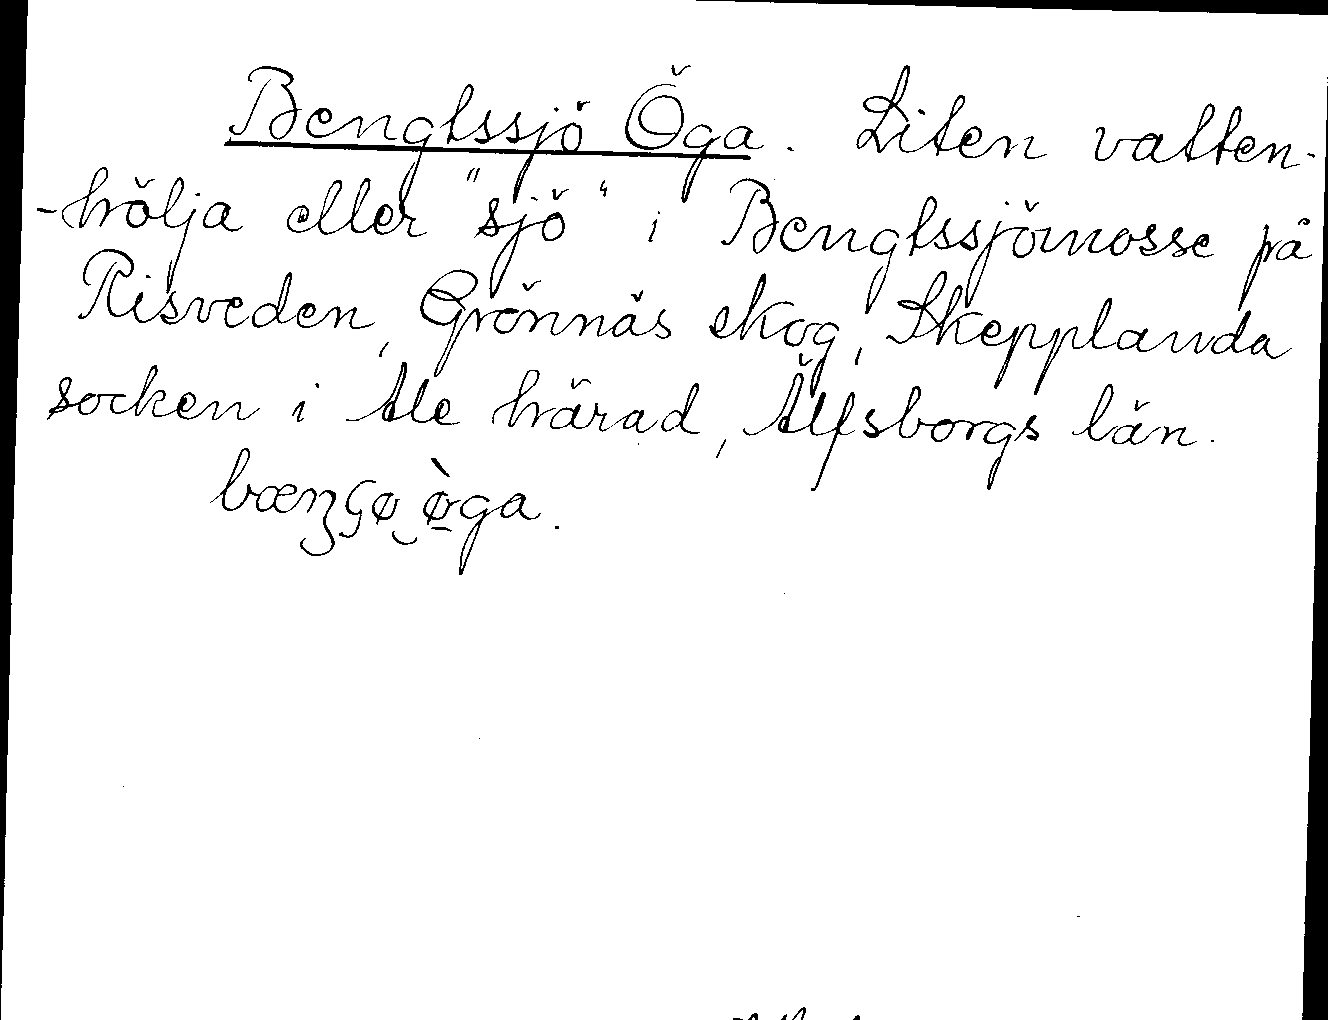 Bengtssjö Öga. Liten vatten-
-hölja eller "sjö" i Bengtssjömosse på
Risveden, Grönnäs skog, Skepplanda
socken i Ale härad, Älfsborgs län.